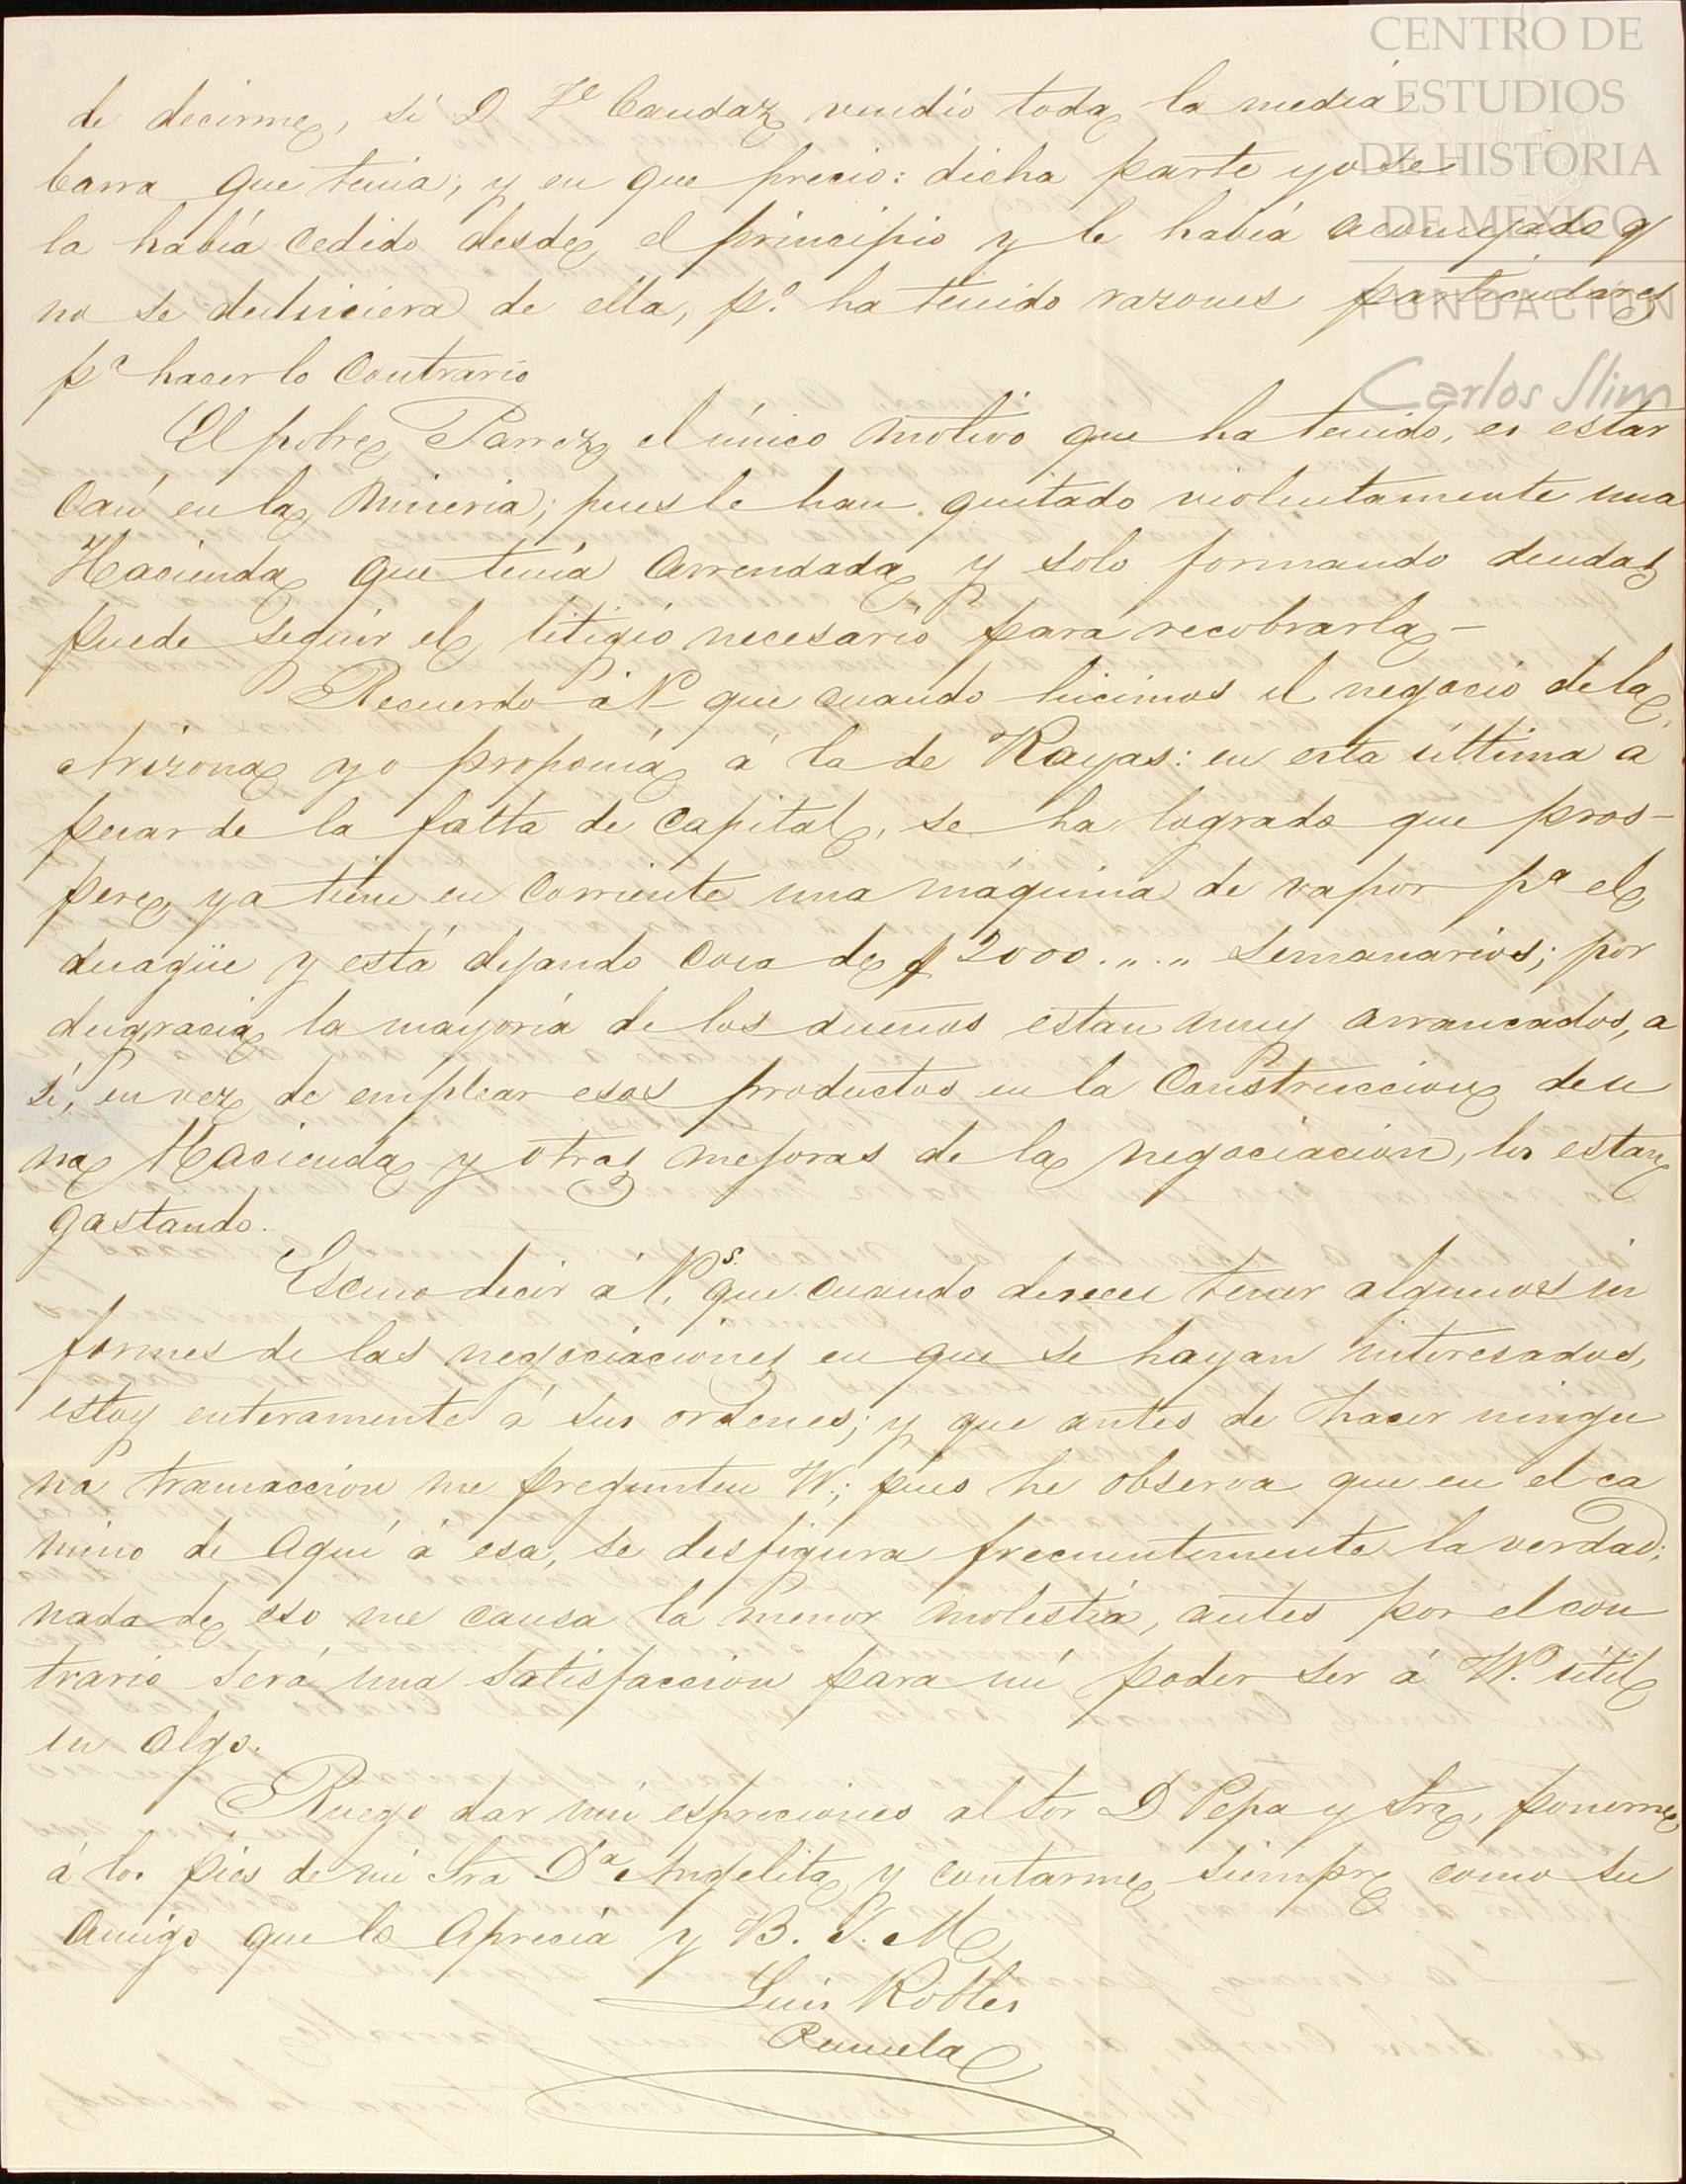 CENTRO DE
ESTUDIOS
DE HISTORIA
DE MEXICO
FUNDACIÓN
Carlos Slim
de decirme, si D Fe Caudaz vendio toda la media
barra que tenia; y en que precio: dicha parte yo se
la había cedido desde el principio y le había aconsejado q
no se deshiciera de ella, po. ha tenido razones particulares
pa hacer lo Contrario
El pobre Parroz el único motivo que ha tenido, es estar
Casi en la Mineria; pues le han quitado violentamente una
Hacienda que tenía Arrendada y solo formando deudas
puede seguir el litigio necesario para recobrarla -
Recuerdo á V que cuando hicimos el negocio de la
Arizona yo proponía á la de Rayas: en esta última á
pesar de la falta de Capital, se ha logrado que pros-
pere, ya tiene en Corriente una máquina de vapor pa el
desagüe y está dejando Cosa de $ 2000.,,.,, Semanarios; por
desgracia la mayoría de los dueños estan muy arrancados, a
sí, en vez de emplear esos productos en la Construccion de u
na Hacienda y otras mejoras de la negociacion, los estan
gastando.
Escuso decir á Vs. que cuando deseen tener algunos in
formes de las negociaciones en que se hayan interesados,
estoy enteramente á sus ordenes; y que antes de hacer ningu
na transaccion me pregunten VV.; pues he observa que en el ca
mino de Aquí á esa, se desfigura frecuentemente la verdad;
nada de eso me causa la menor molestia, antes por el con
trario será una satisfaccion para mí poder ser á VV. útil
en algo.
Ruego dar mis espreciones al Sor D Pepa y Sra, ponerme
á los pies de mi Sra Da Angelita y contarme siempre como su
Amigo que lo Aprecia y B. S. M
Luis Robles
Pezuela